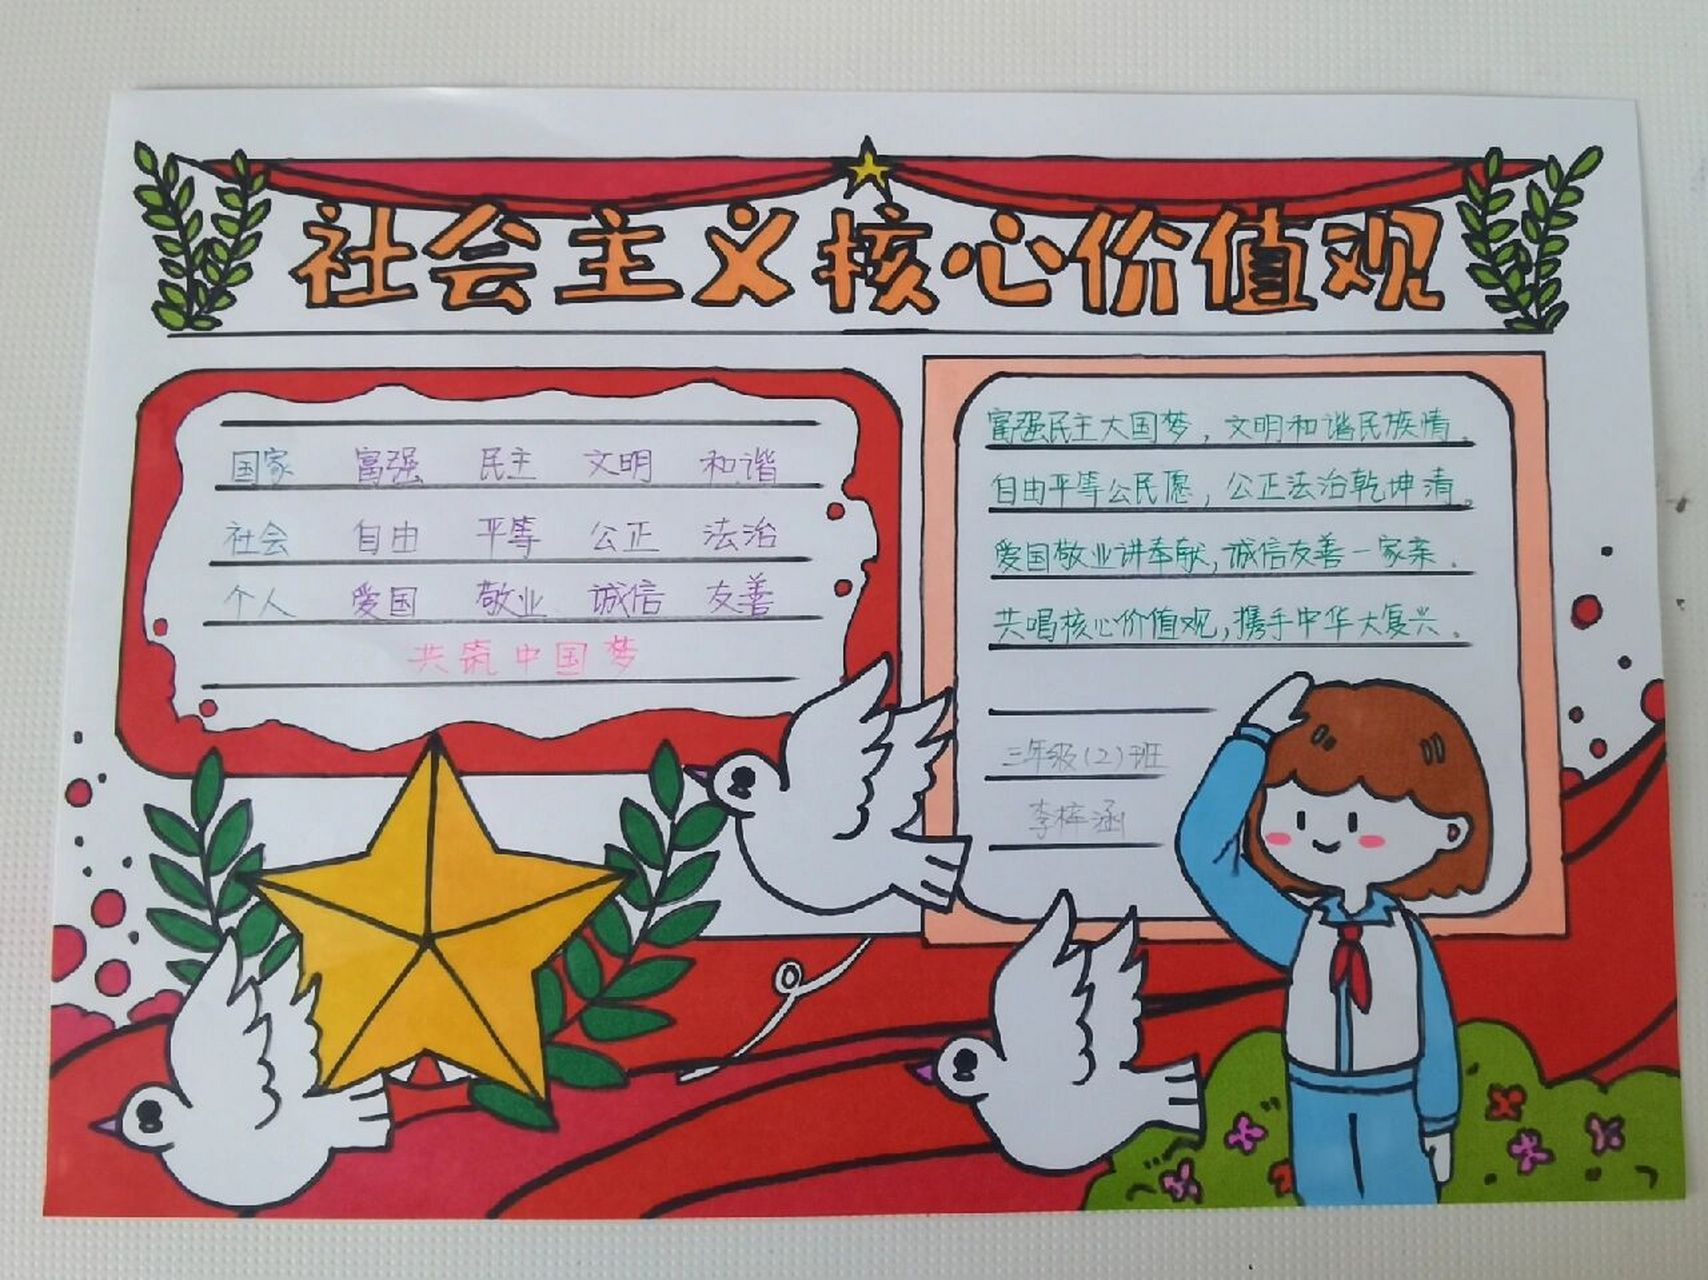 社会主义核心价值观
国家 富强 民主 文明 和谐
社会 自由 平等 公正 法治
个人 爱国 敬业 诚信 友善
共筑中国梦
富强民主大国梦，文明和谐民族情。
自由平等公民愿，公正法治乾坤清。
爱国敬业讲奉献，诚信友善一家亲。
共唱核心价值观，携手中华大复兴。
三年级(2)班
李梓涵